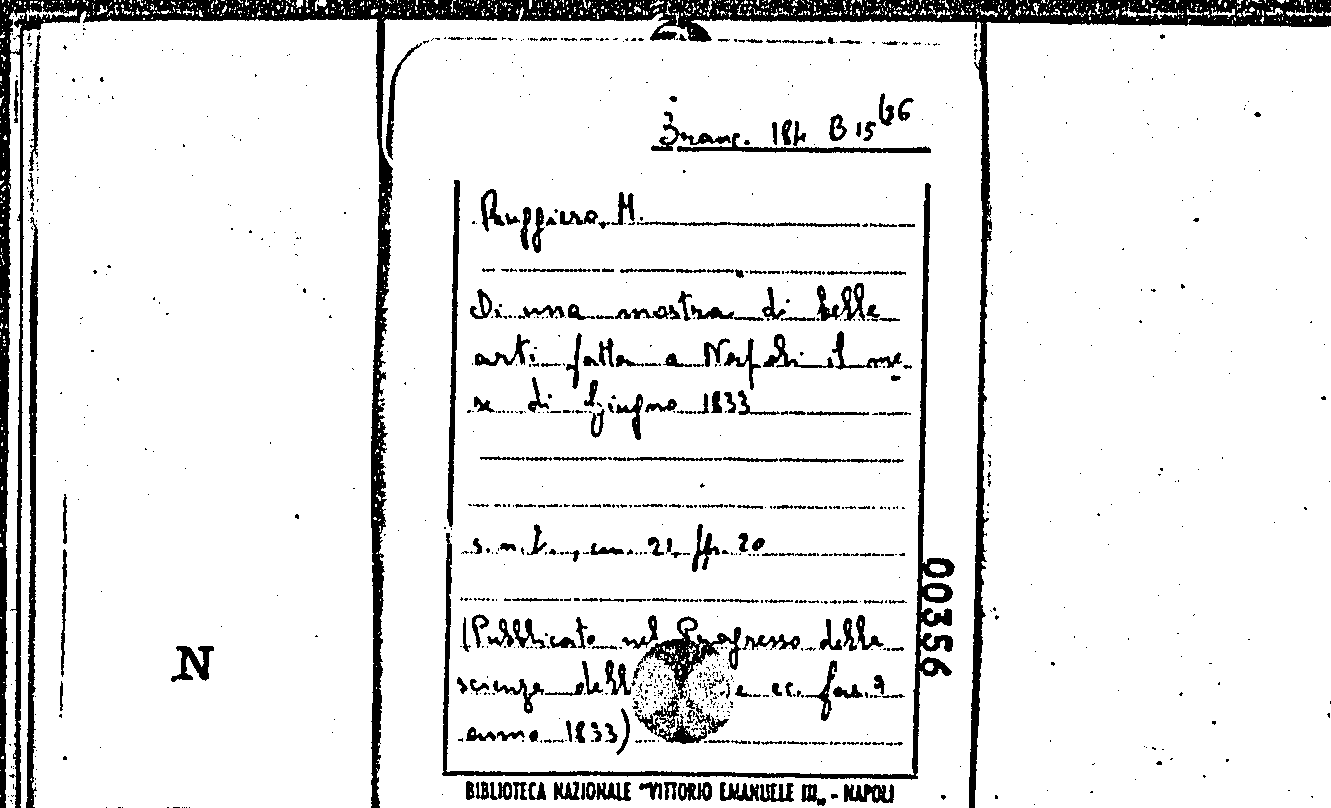 Branc. 184 B 15
Ruggiero, M.
Di una mostra di belle
arti fatta a Napoli il me-
se di Giugno 1833
s.n.t., cm. 21, pp. 20
(Pubblicato nel Progresso delle
scienze dell e ec. fas. 9
anno 1833)
00356
N
BIBLIOTECA NAZIONALE "VITTORIO EMANUELE III„ - NAPOLI